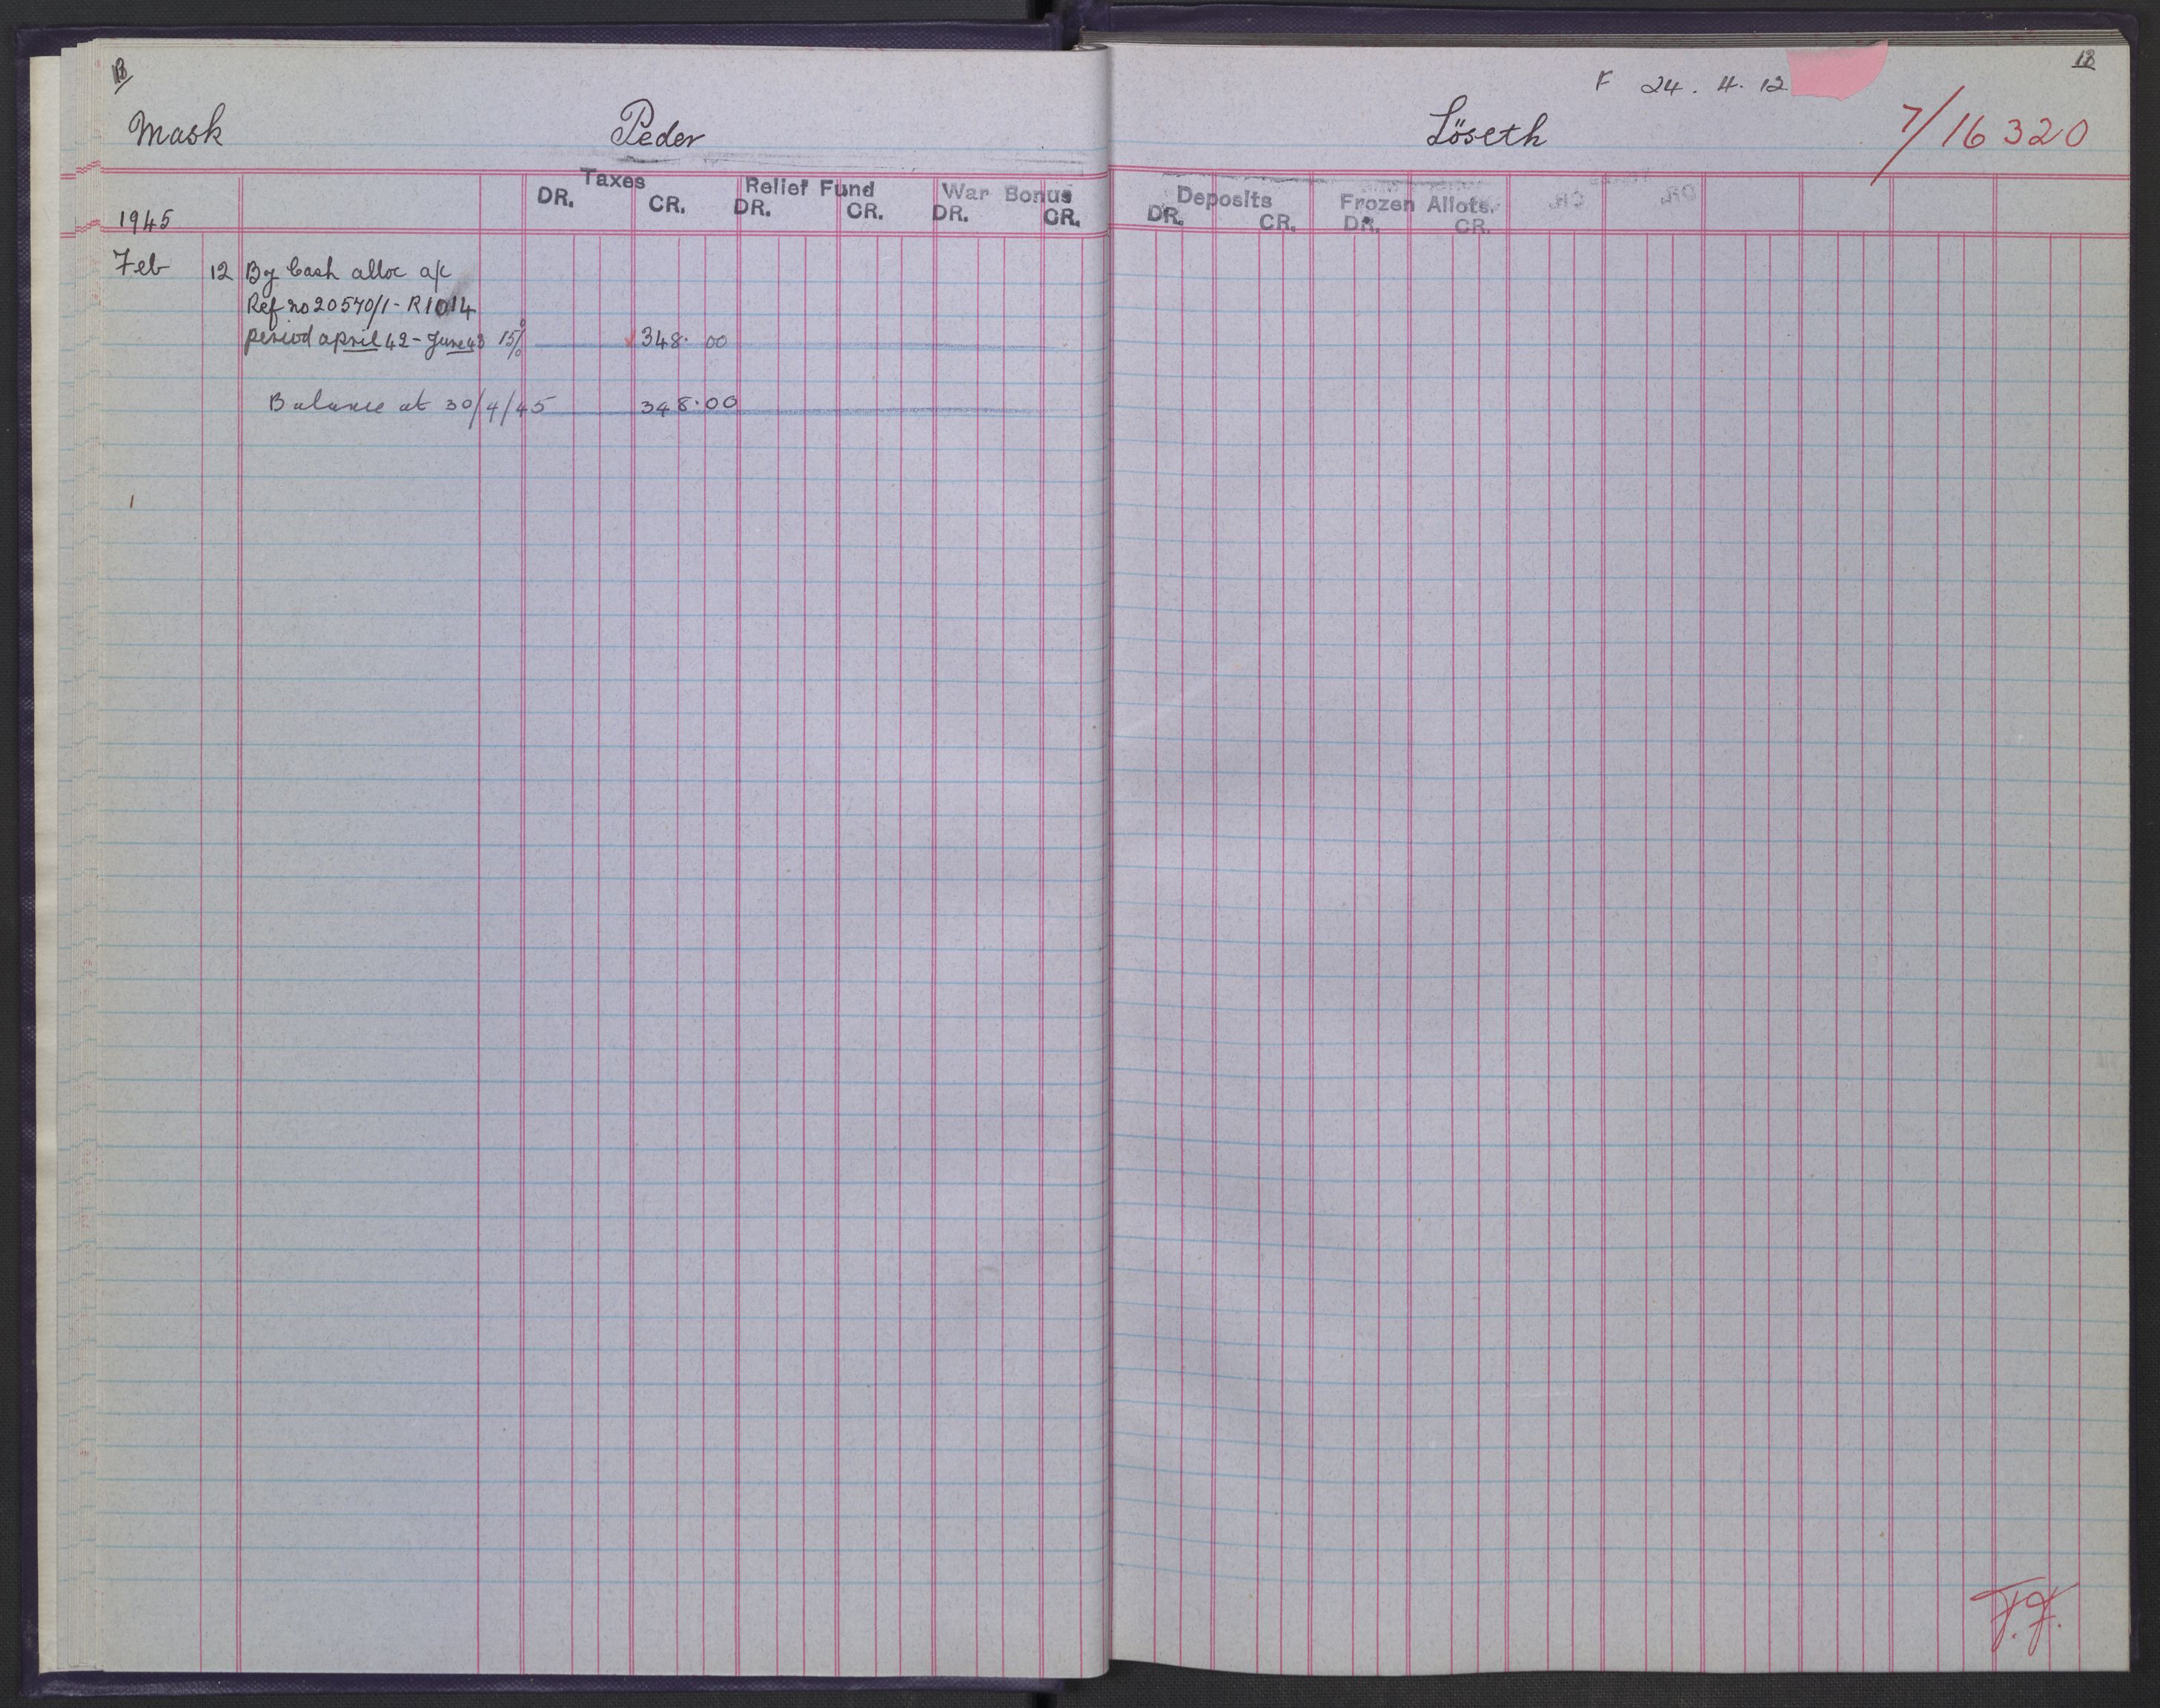 13
Mask Peder
Taxes Relief Fund War Bonus
DR. CR. DR. CR. DR. CR.
1945
Feb 12 By Cash alloc a/c
Ref no 20570/1 - R1014
period april 42 - June 43 15% 348. 00
Balance at 30/4/45 348.00
13
F 24. 4. 12
Löseth 7/16320
Deposits Frozen Allots.
DR. CR. DR. CR.